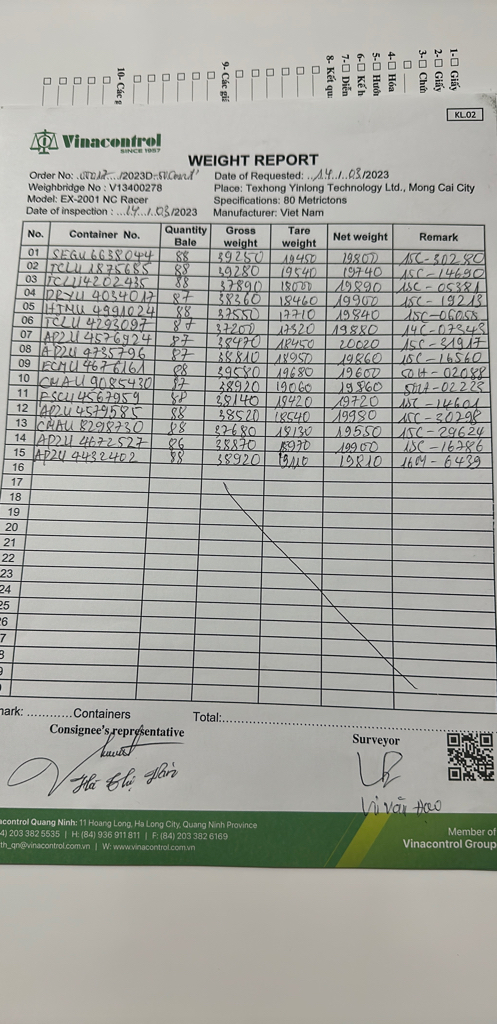 1- Giấy
2- Giấy
3- Chứ
4- Hóa
5- Hướ
6- Kế h
7- Diễn
8- Kết qu
9- Các giấ
10- Các g
KL.02
Vinacontrol
SINCE 1957
WEIGHT REPORT
Order No: /2023D- Date of Requested: 14/03/2023
Weighbridge No : V13400278 Place: Texhong Yinlong Technology Ltd., Mong Cai City
Model: EX-2001 NC Racer Specifications: 80 Metrictons
Date of inspection : 14/03/2023 Manufacturer: Viet Nam
No. Container No. Quantity Bale Gross weight Tare weight Net weight Remark
01 SEGU 6638044 88 39250 19450 19800 15C-30280
02 TCLU 1875685 88 39280 19540 19740 15C-14690
03 TCLU 4202435 88 37890 18000 19890 15C-05381
04 DRYU 4034017 87 38360 18460 19900 15C-19213
05 HTMU 4991024 88 37550 17710 19840 15C-06058
06 TCLU 4293097 87 37200 17320 19880 14C-07343
07 AP2U 4576924 87 38470 18450 20020 15C-31917
08 AP2U 4735796 87 38810 18950 19860 15C-16560
09 ECMU 4676161 88 39580 19680 19600 50H-02088
10 CMAU 9085430 87 38920 19060 19860 -02223
11 FSCU 4567959 88 38140 18420 19720 15C-14601
12 AP2U 4579585 88 38520 18540 19980 15C-30298
13 CMAU 8298730 88 37680 18130 19550 15C-29624
14 AP2U 4672527 86 38870 18970 19900 15C-16786
15 AP2U 4432402 88 38920 19110 19810 16M-6439
16
17
18
19
20
21
22
23
24
25
6
7
8
9
mark: ............Containers Total:
Consignee's representative Surveyor
Hà Thị Hân
Vi Văn Đạo
acontrol Quang Ninh: 11 Hoang Long, Ha Long City, Quang Ninh Province
4) 203 382 5535 | H: (84) 936 911 811 | F: (84) 203 382 6169
th_qn@vinacontrol.com.vn | W: www.vinacontrol.com.vn
Member of
Vinacontrol Group